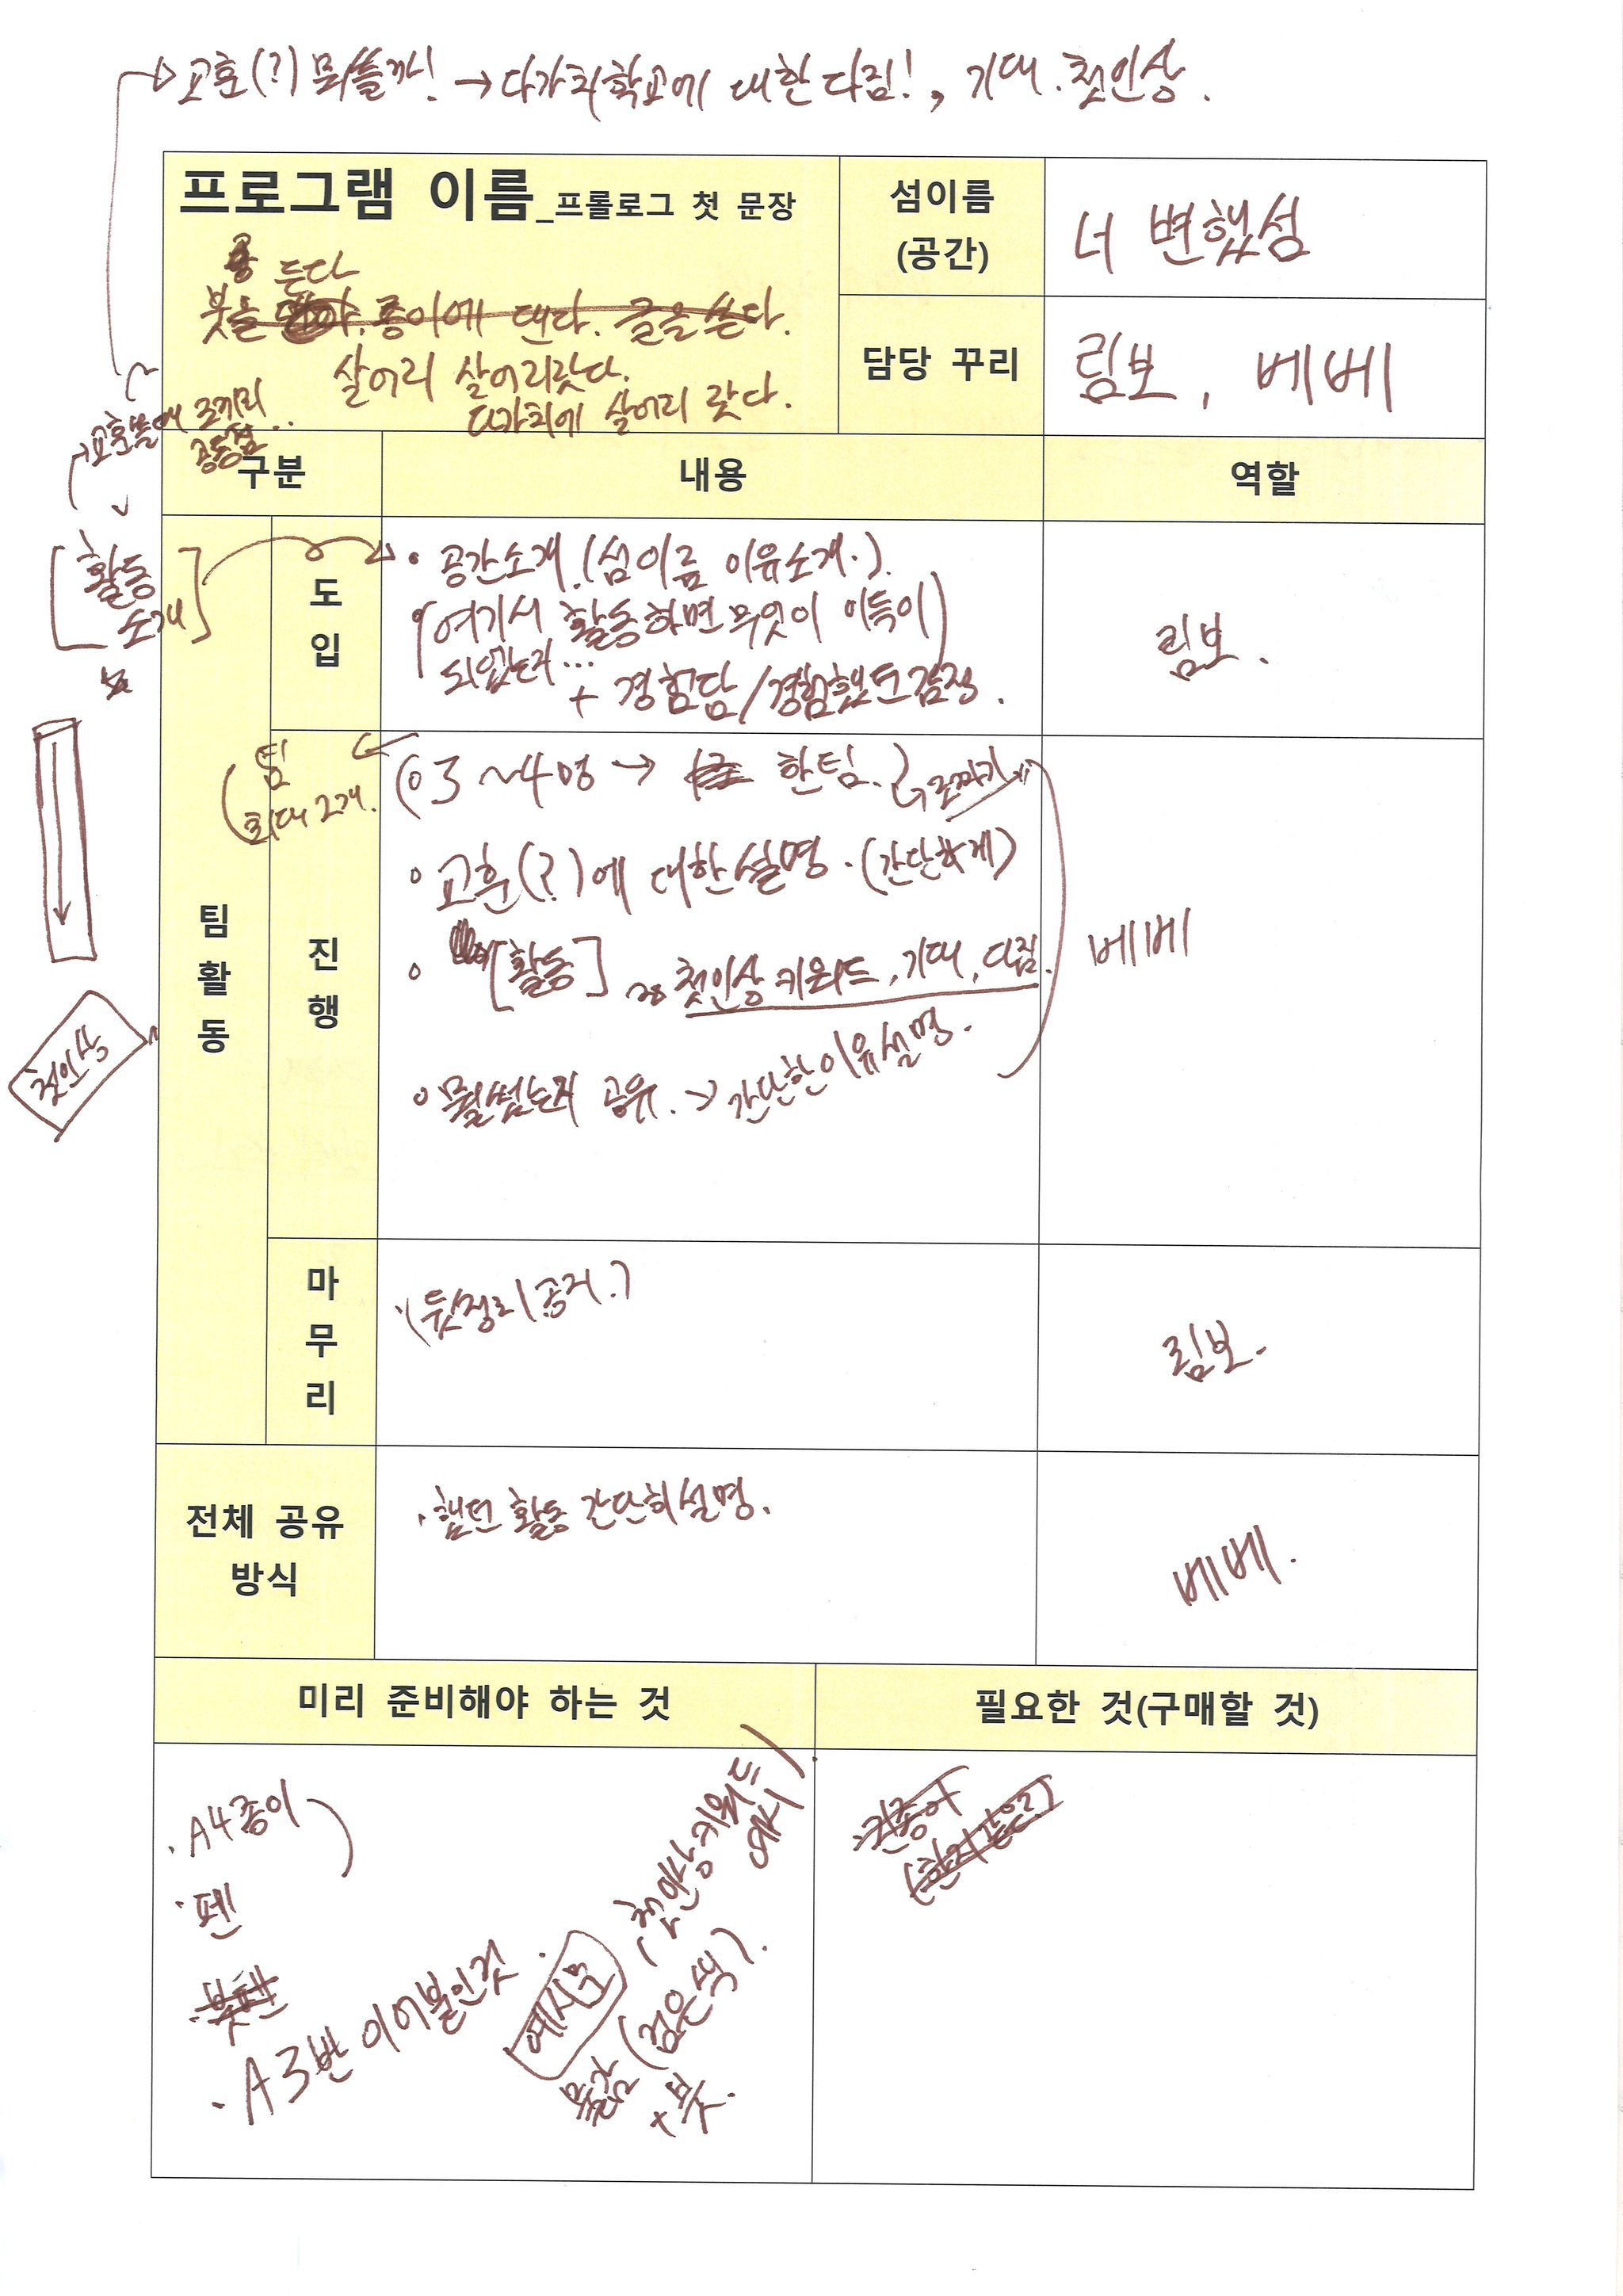 교훈(?) 뭐쓸까! → 다가치학교에 대한 다짐!, 기대. 첫인상.
프로그램 이름_프롤로그 첫 문장
든다
붓을 종이에 댄다. 글을 쓴다.
살어리 살어리랏다.
다가치에 살어리 랏다.
섬이름
(공간)
너 변했섬
담당 꾸리
림보, 베베
공통점
구분
내용
역할
[활동
소개]
팀활동
도입
· 공간소개.(섬이름 이유소개.)
(여기서 활동하면 무엇이 이득이
되었는지...)
+ 경험담/경험했던감정.
림보.
진행
(팀
최대 2개.
3~4명 → 한팀.
교훈(?)에 대한설명.(간단하게)
[활동] 첫인상 키워드, 기대, 다짐.
뭘썼는지 공유. → 간단한이유설명.
베베
첫인상
마무리
(뒷정리 공지.)
림보.
전체 공유
방식
· 했던 활동 간단히설명.
베베.
미리 준비해야 하는 것
필요한 것(구매할 것)
· A4종이
· 펜
· 붓펜
· A3반 이어붙인것.
예시물
(첫인상키워드
예시)
물감 (검은색).
+ 붓.
· 큰종이
(한지같은거)